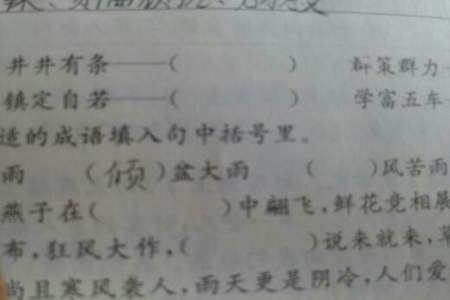 井井有条——(　　) 群策群力—
镇定自若——(　　) 学富五车—
适的成语填入句中括号里。
雨　(倾)盆大雨　(　　)风苦雨
燕子在(　　)中翩飞,鲜花竞相展
布,狂风大作,(　　)说来就来,草
尚且寒风袭人,雨天更是阴冷,人们爱